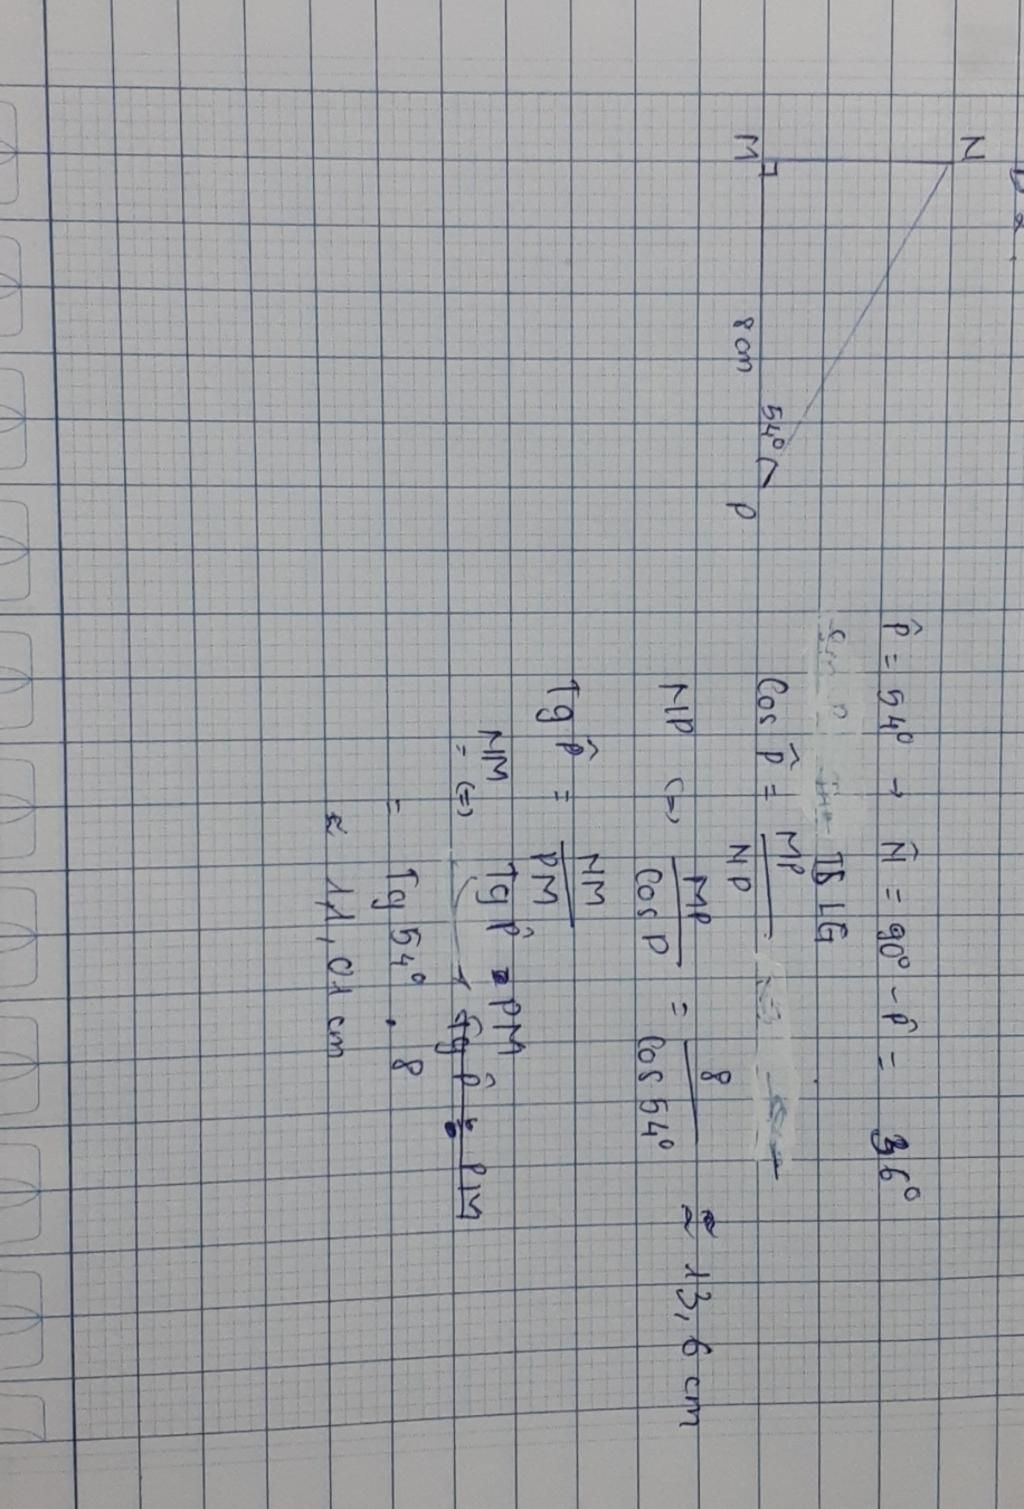 N
M
8 cm
54°
P
P̂ = 54° → N̂ = 90° - P̂ = 36°
Cos P̂ = MP / NP
NP (=) MP / Cos P = 8 / Cos 54° ≈ 13,6 cm
Tg P̂ = NM / PM
NM (=) Tg P̂ . PM
= Tg 54° . 8
≈ 11,01 cm